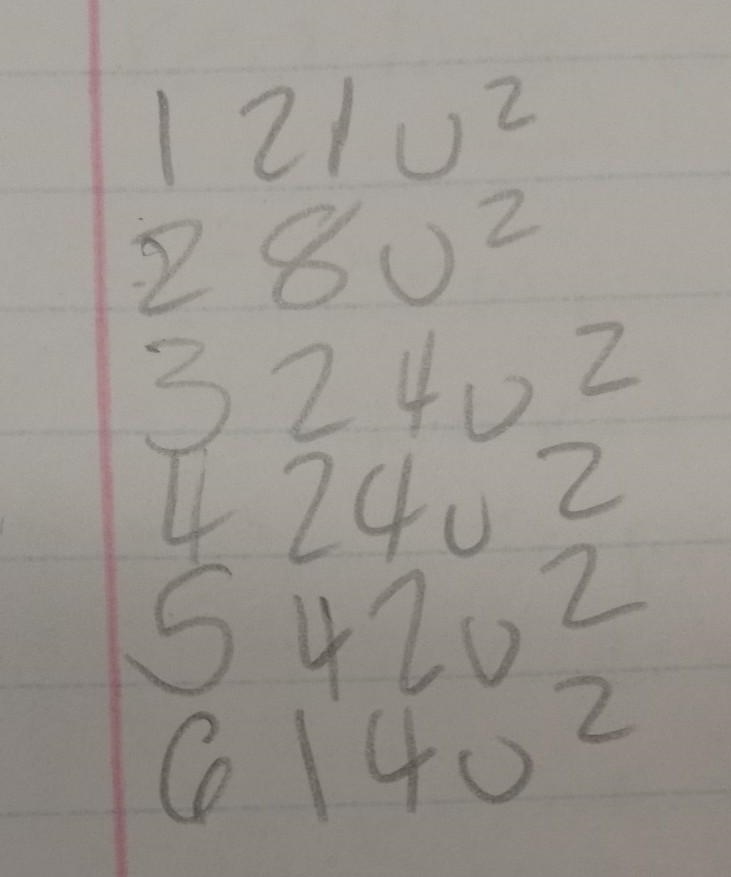 1 21u²
2 8u²
3 24u²
4 24u²
5 42u²
6 14u²